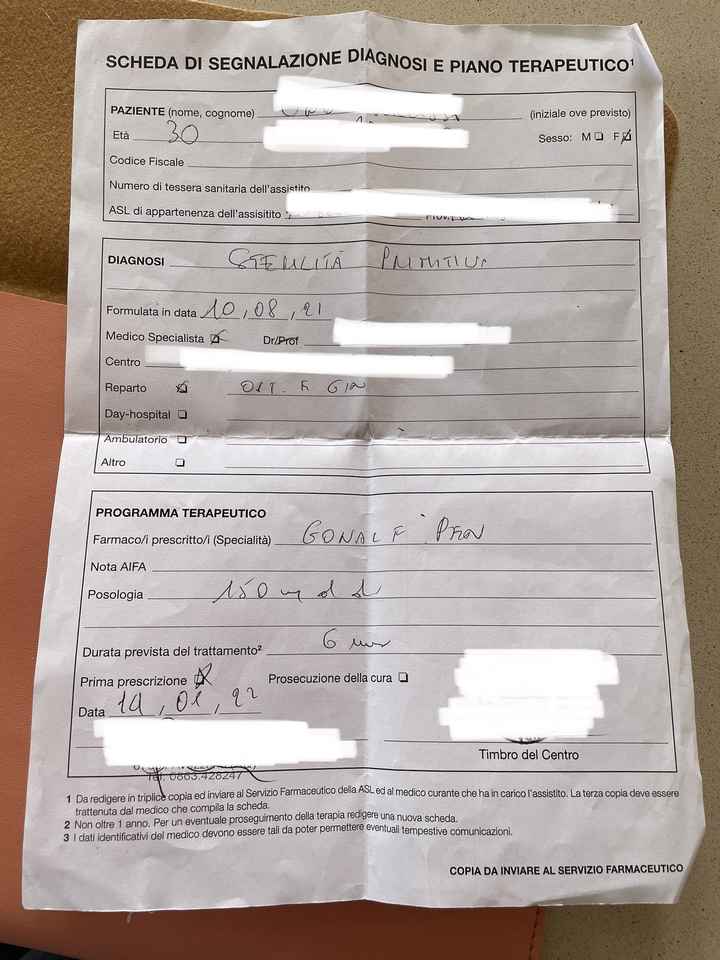 SCHEDA DI SEGNALAZIONE DIAGNOSI E PIANO TERAPEUTICO¹
PAZIENTE (nome, cognome) (iniziale ove previsto)
Età 30 Sesso: M F
Codice Fiscale
Numero di tessera sanitaria dell'assistito
ASL di appartenenza dell'assisitito
DIAGNOSI STERILITÀ PRIMITIVA
Formulata in data 10, 08, 21
Medico Specialista Dr/Prof
Centro
Reparto OST. E GIN
Day-hospital
Ambulatorio
Altro
PROGRAMMA TERAPEUTICO
Farmaco/i prescritto/i (Specialità) GONAL F PEN
Nota AIFA
Posologia 150
Durata prevista del trattamento² 6
Prima prescrizione Prosecuzione della cura
Data 01, 22
Timbro del Centro
Tel. 0863.428247
1 Da redigere in triplice copia ed inviare al Servizio Farmaceutico della ASL ed al medico curante che ha in carico l'assistito. La terza copia deve essere
trattenuta dal medico che compila la scheda.
2 Non oltre 1 anno. Per un eventuale proseguimento della terapia redigere una nuova scheda.
3 I dati identificativi del medico devono essere tali da poter permettere eventuali tempestive comunicazioni.
COPIA DA INVIARE AL SERVIZIO FARMACEUTICO